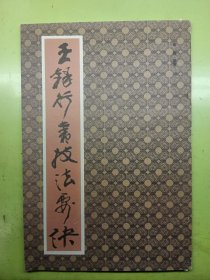 王铎行书技法要诀